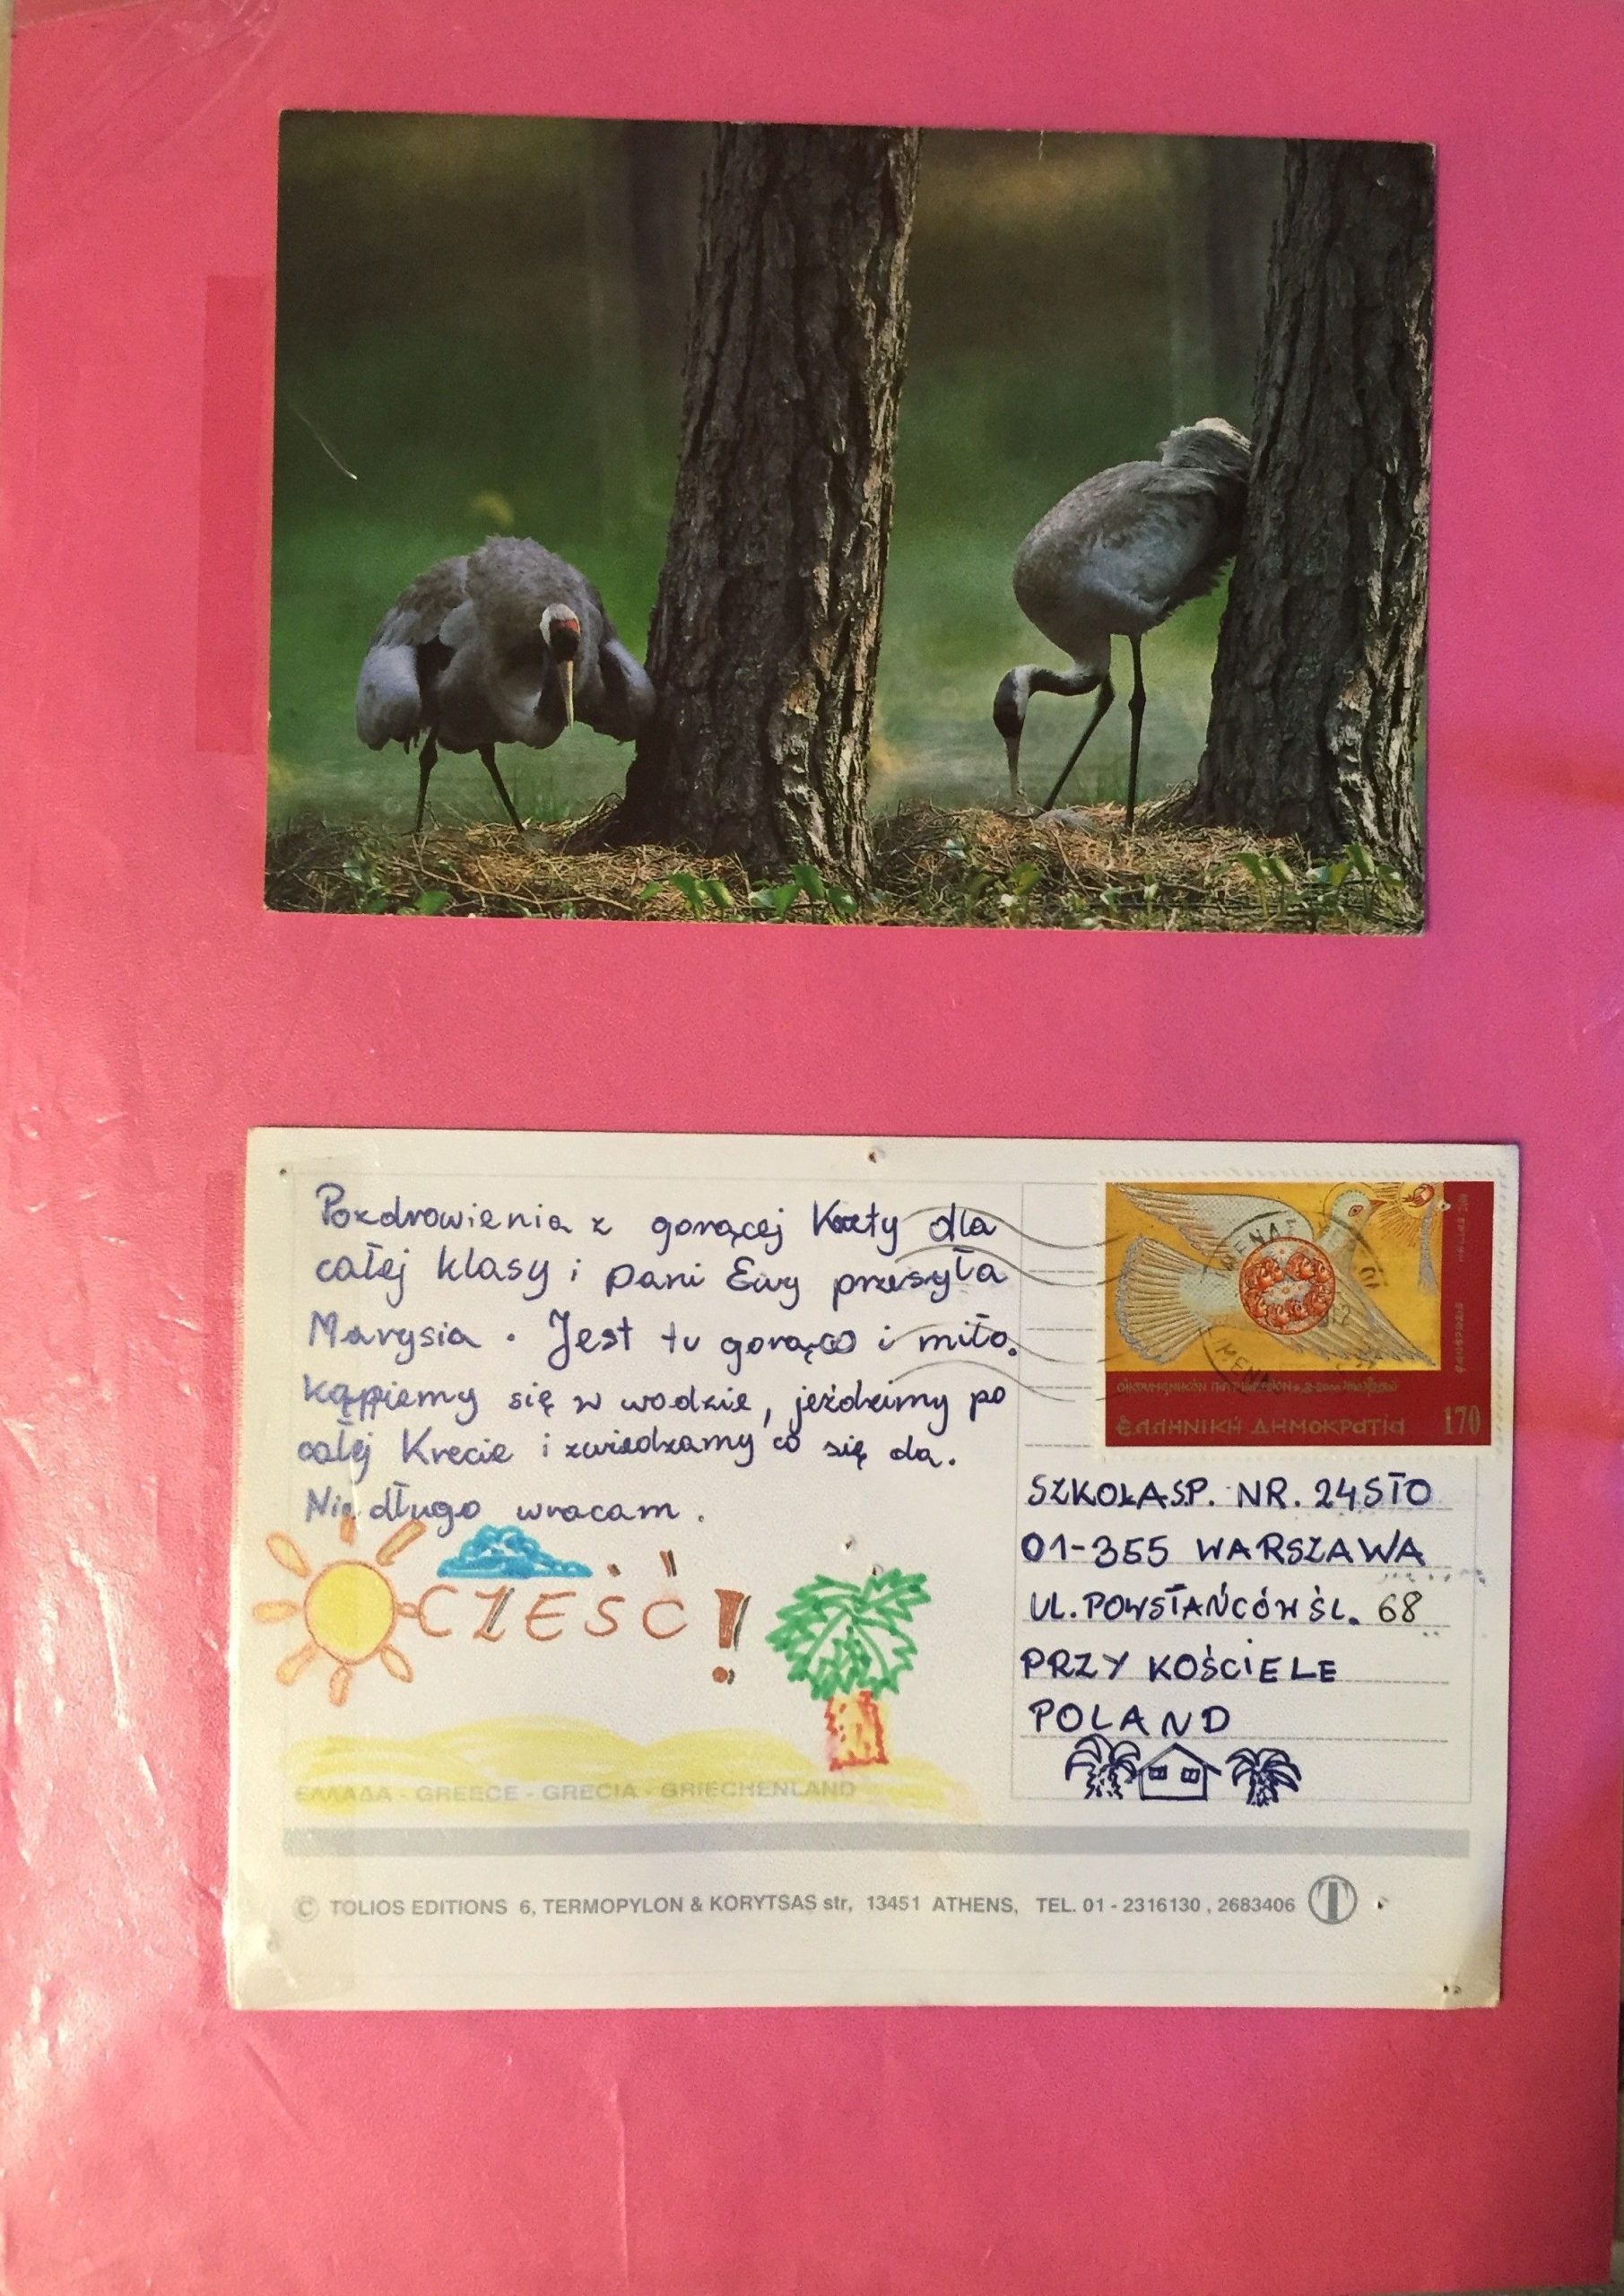 Pozdrowienia z gorącej Krety dla
całej klasy i pani Ewy przesyła
Marysia. Jest tu gorąco i miło.
kąpiemy się w wodzie, jeździmy po
całej Krecie i zwiedzamy co się da.
Nie długo wracam.
CZEŚĆ!
ΕΛΛΑΔΑ - GREECE - GRECIA - GRIECHENLAND
ΕΛΛΗΝΙΚΗ ΔΗΜΟΚΡΑΤΙΑ 170
SZKOŁA S.P. NR. 24 STO
01-355 WARSZAWA
UL. POWSTAŃCÓW ŚL. 68
PRZY KOŚCIELE
POLAND
© TOLIOS EDITIONS 6, TERMOPYLON & KORYTSAS str, 13451 ATHENS, TEL. 01 - 2316130 , 2683406 T